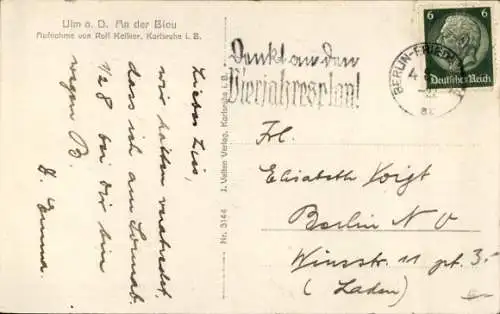 Ulm a. D. An der Blau
Aufnahme von Rolf Kellner, Karlsruhe i. B.
Lieber Leis,
wir hatten verabredet
dass ich am Sonnab.
1/2 8 bei dir bin
wegen B.
E. Emma.
Nr. 3144 J. Velten Verlag, Karlsruhe i. B.
Denkt an den
Vierjahresplan!
BERLIN-FRIED
6 6
Deutsches Reich
Frl.
Elisabeth Voigt
Berlin N O
Winsstr. 11 pt. 3.
(Laden)